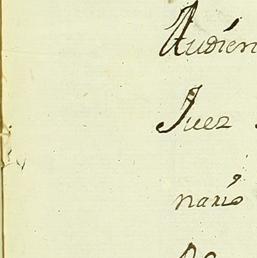 Audien
Juez
nario